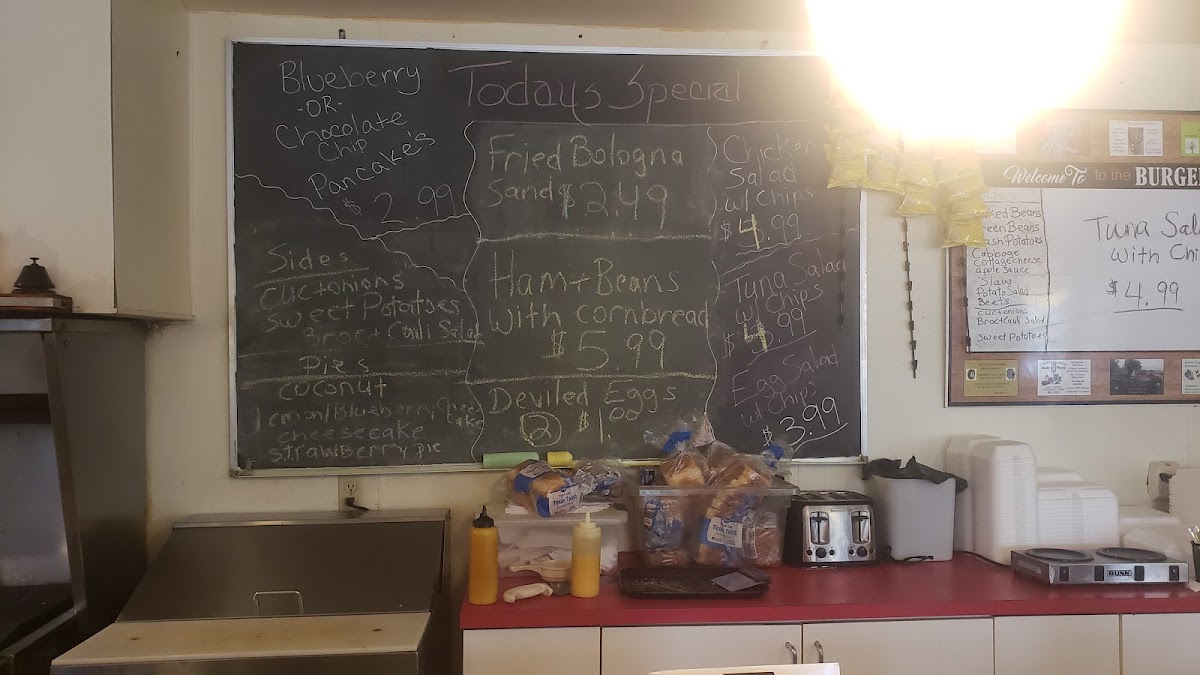 Blueberry
-OR-
Chocolate
Chip
Pancake's
$ 2.99
Sides
Cuc+onions
Sweet Potatoes
Cauli Salad
Pies
coconut
lemon/Blueberry
cake
cheesecake
strawberry pie
Todays Special
Fried Bologna
Sand $2.49
Ham + Beans
with cornbread
$5.99
Deviled Eggs
② $1.00
Chicken
Salad
w/ Chips
$4.99
Tuna Salad
w/ Chips
$4.99
Egg Salad
w/ Chips
$3.99
Welcome To to the BURGER
Baked Beans
Green Beans
Mash Potatoes
Cabbage
Cottage cheese
apple sauce
Slaw
Potato Salad
Beets
Cuc+onions
Broc+Cauli Salad
Sweet Potatoes
Tuna Sal
With Chi
$4.99
Texas Toast
Texas Toast
BUNN